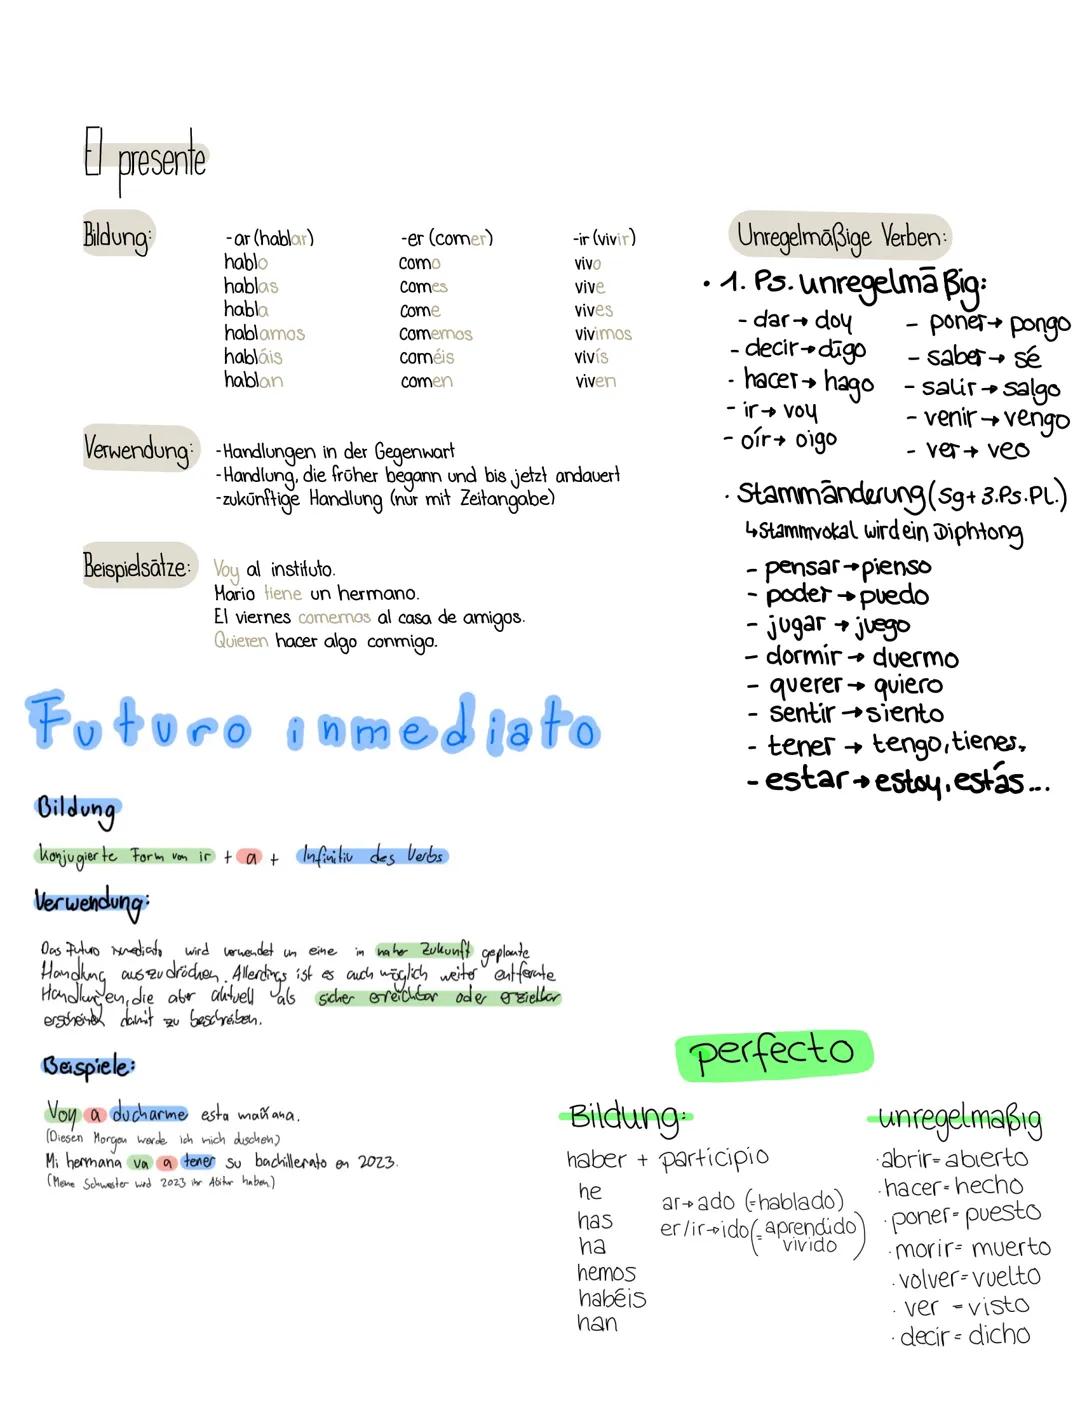 El presente
Bildung:
-ar (hablar)
hablo
hablas
habla
hablamos
habláis
hablan
-er (comer)
como
comes
come
comemos
coméis
comen
-ir (vivir)
vivo
vive
vives
vivimos
vivís
viven
Verwendung:
-Handlungen in der Gegenwart
-Handlung, die früher begann und bis jetzt andauert
-zukünftige Handlung (nur mit Zeitangabe)
Beispielsätze:
Voy al instituto.
Mario tiene un hermano.
El viernes comemos al casa de amigos.
Quieren hacer algo conmigo.
Unregelmäßige Verben:
• 1. Ps. unregelmäßig:
- dar → doy
- decir → digo
- hacer → hago
- ir → voy
- oír → oigo
- poner → pongo
- saber → sé
- salir → salgo
- venir → vengo
- ver → veo
• Stammänderung (Sg + 3.Ps.Pl.)
↳ Stammvokal wird ein Diphtong
- pensar → pienso
- poder → puedo
- jugar → juego
- dormir → duermo
- querer → quiero
- sentir → siento
- tener → tengo, tienes,
- estar → estoy, estás...
Futuro inmediato
Bildung
Konjugierte Form von ir + a + Infinitiv des Verbs
Verwendung:
Das Futuro inmediato wird verwendet um eine in naher Zukunft geplante
Handlung auszudrücken. Allerdings ist es auch möglich weiter entfernte
Handlungen, die aber aktuell als sicher erreichbar oder erzielbar
erscheinen damit zu beschreiben.
Beispiele:
Voy a ducharme esta mañana.
(Diesen Morgen werde ich mich duschen)
Mi hermana va a tener su bachillerato en 2023.
(Meine Schwester wird 2023 ihr Abitur haben)
perfecto
Bildung:
haber + participio
he
has
ha
hemos
habéis
han
ar → ado (=hablado)
er/ir → ido (= aprendido
vivido)
unregelmaßig
• abrir = abierto
• hacer = hecho
• poner = puesto
• morir = muerto
• volver = vuelto
• ver = visto
• decir = dicho